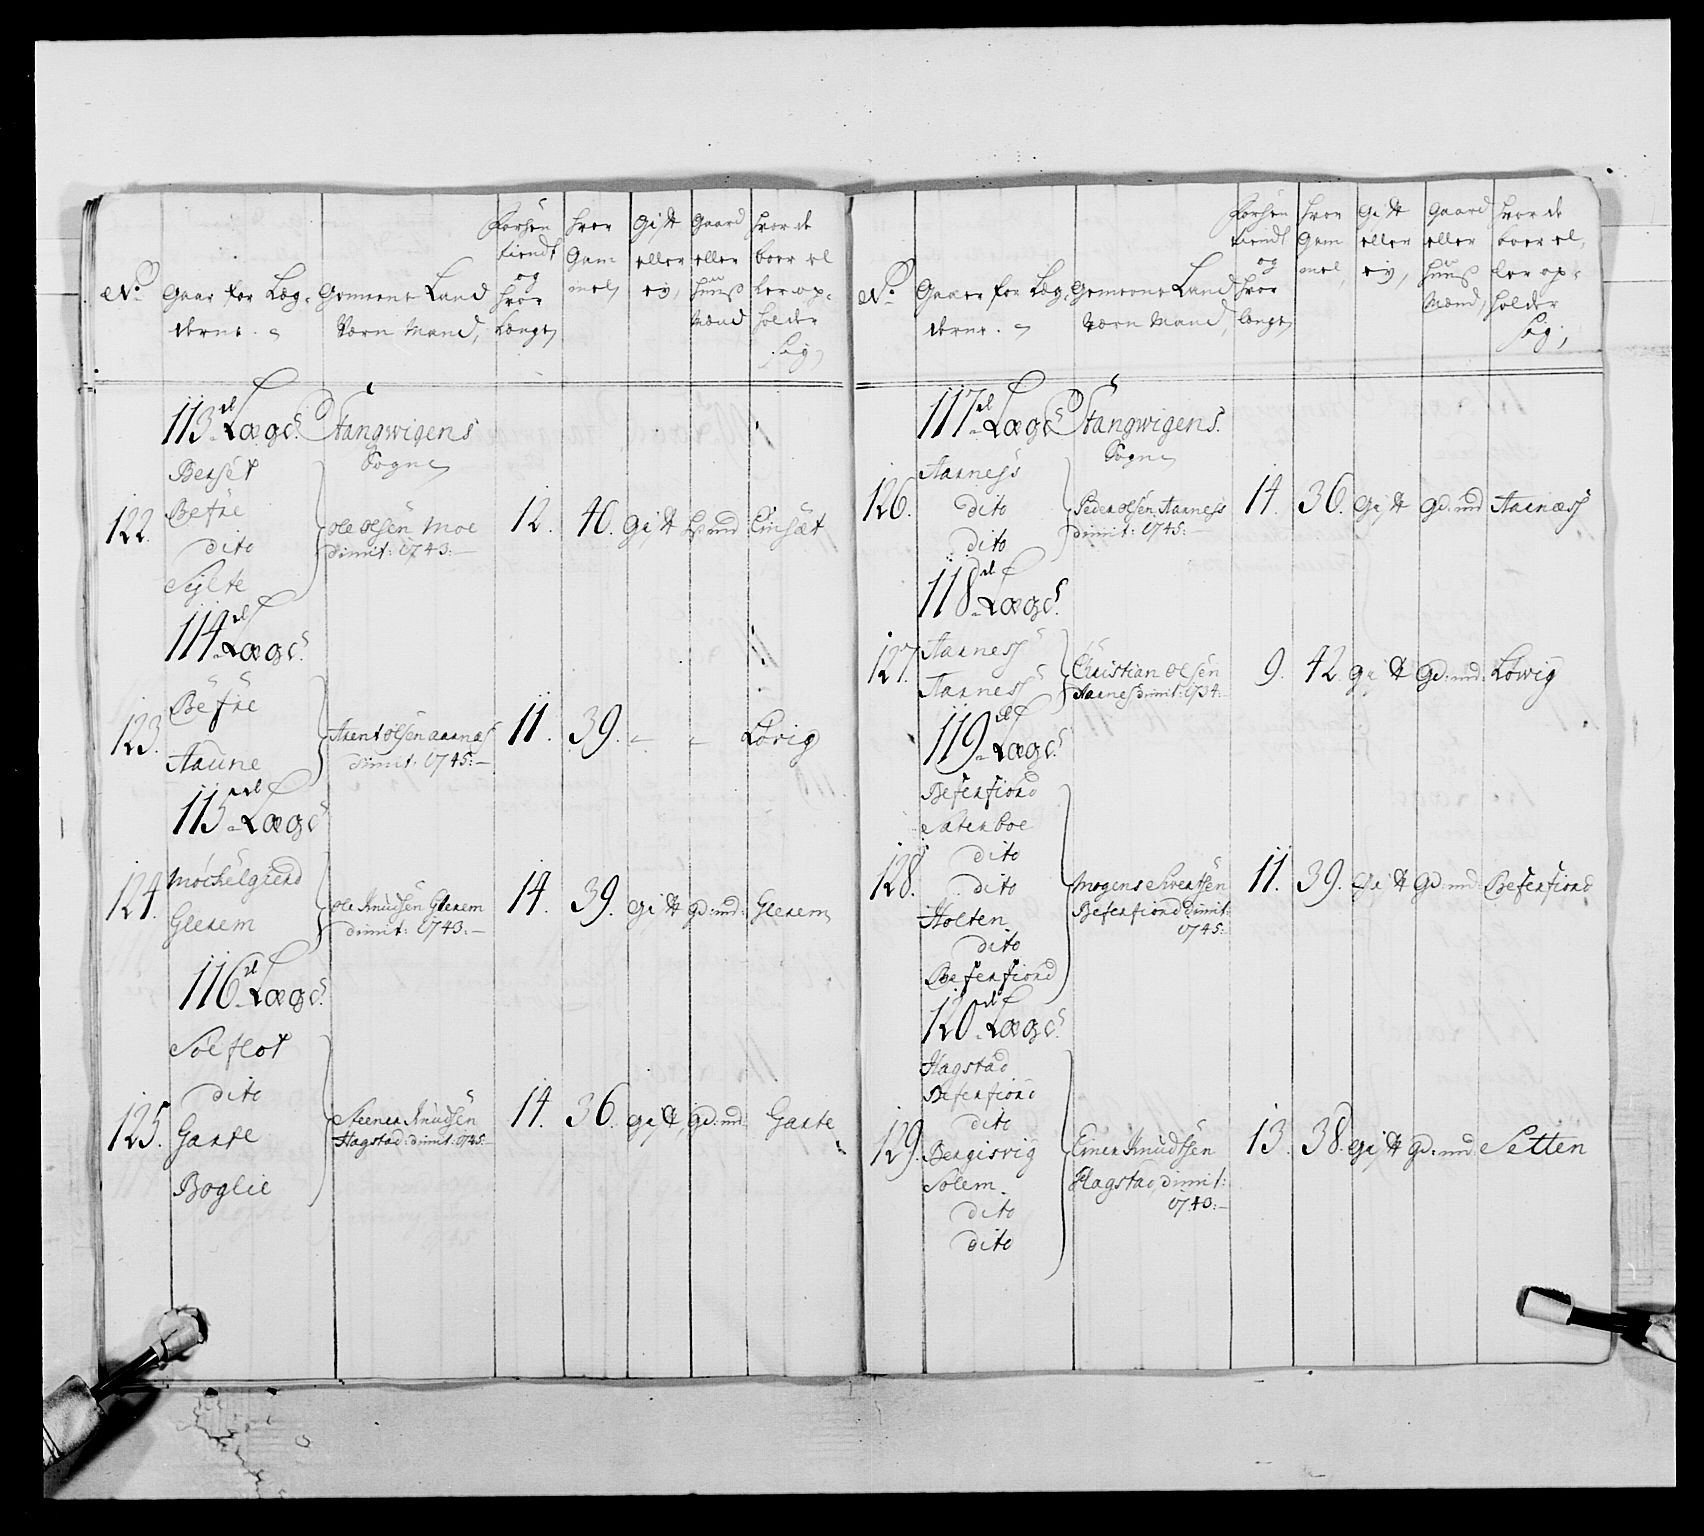 No. Gaar for Læg-
derne.
Gemeene Land
Værn Mand,
Forhen
tiendt
og
hvor
længe,
hvor
Gam
mel,
Gift
eller
ey,
Gaard
eller
Huuß
Mænd
hvor de
boer el
ler op-
holder
sig,
113de Lægd. Stangwigens
Sogne,
Berset
122. Befre
dito
Sylte
Ole Olsen Moe
dimit: 1743:—
12. 40. Gift Einsæt
114de Lægd.
Befre
123.
Aaune
Arent Olsen Aarnæs
dimit: 1745:—
11. 39. - - Lovig
115de Lægd
124. Mochelgierd
Glerem
Ole Knudsen Glerem
dimit: 1743:—
14. 39. Gift Gd: md: Glerem
116de Lægd.
Solflot
dito
125. Garte
Boglie
Steener Knudsen
Hagstad: dimit: 1745—
14. 36. Gift, Gd: md: Garte
No. Gaaer for Læg-
derne.
Gemeene Land
Værn Mand,
Forhen
tiendt
og
hvor
længe,
hvor
Gam
mel,
Gift
eller
ey,
Gaard
eller
Huuß
Mænd,
hvor de
boer el,
ler op-
holder
sig,
117de Lægd Stangwigens.
Sogne,
Aarness
126. dito
dito
Peder Olsen Aarness
dimit: 1745:—
14. 36. Gift Gd: md Aarnæss
118de Lægd.
127. Aarness
Aarness
Christian Olsen
Aarness dimit: 1734:—
9. 42. Gift Gd: md: Lowig
119de Lægd.
Befenfiord
Sæterboe
dito
128. dito
Holten.
dito
Befenfiord
Mogens Sivertsen
Befenfiord dimit:
1745:
11. 39. Gift Gd: md: Befenfiord
120de Lægd.
Hagstad
Befenfiord
dito
129. Bergisvig
Solem.
dito
dito
Einer Knudtsen
Hagstad, dimit:
1743:—
13. 38. Gift Gd: md: Setten